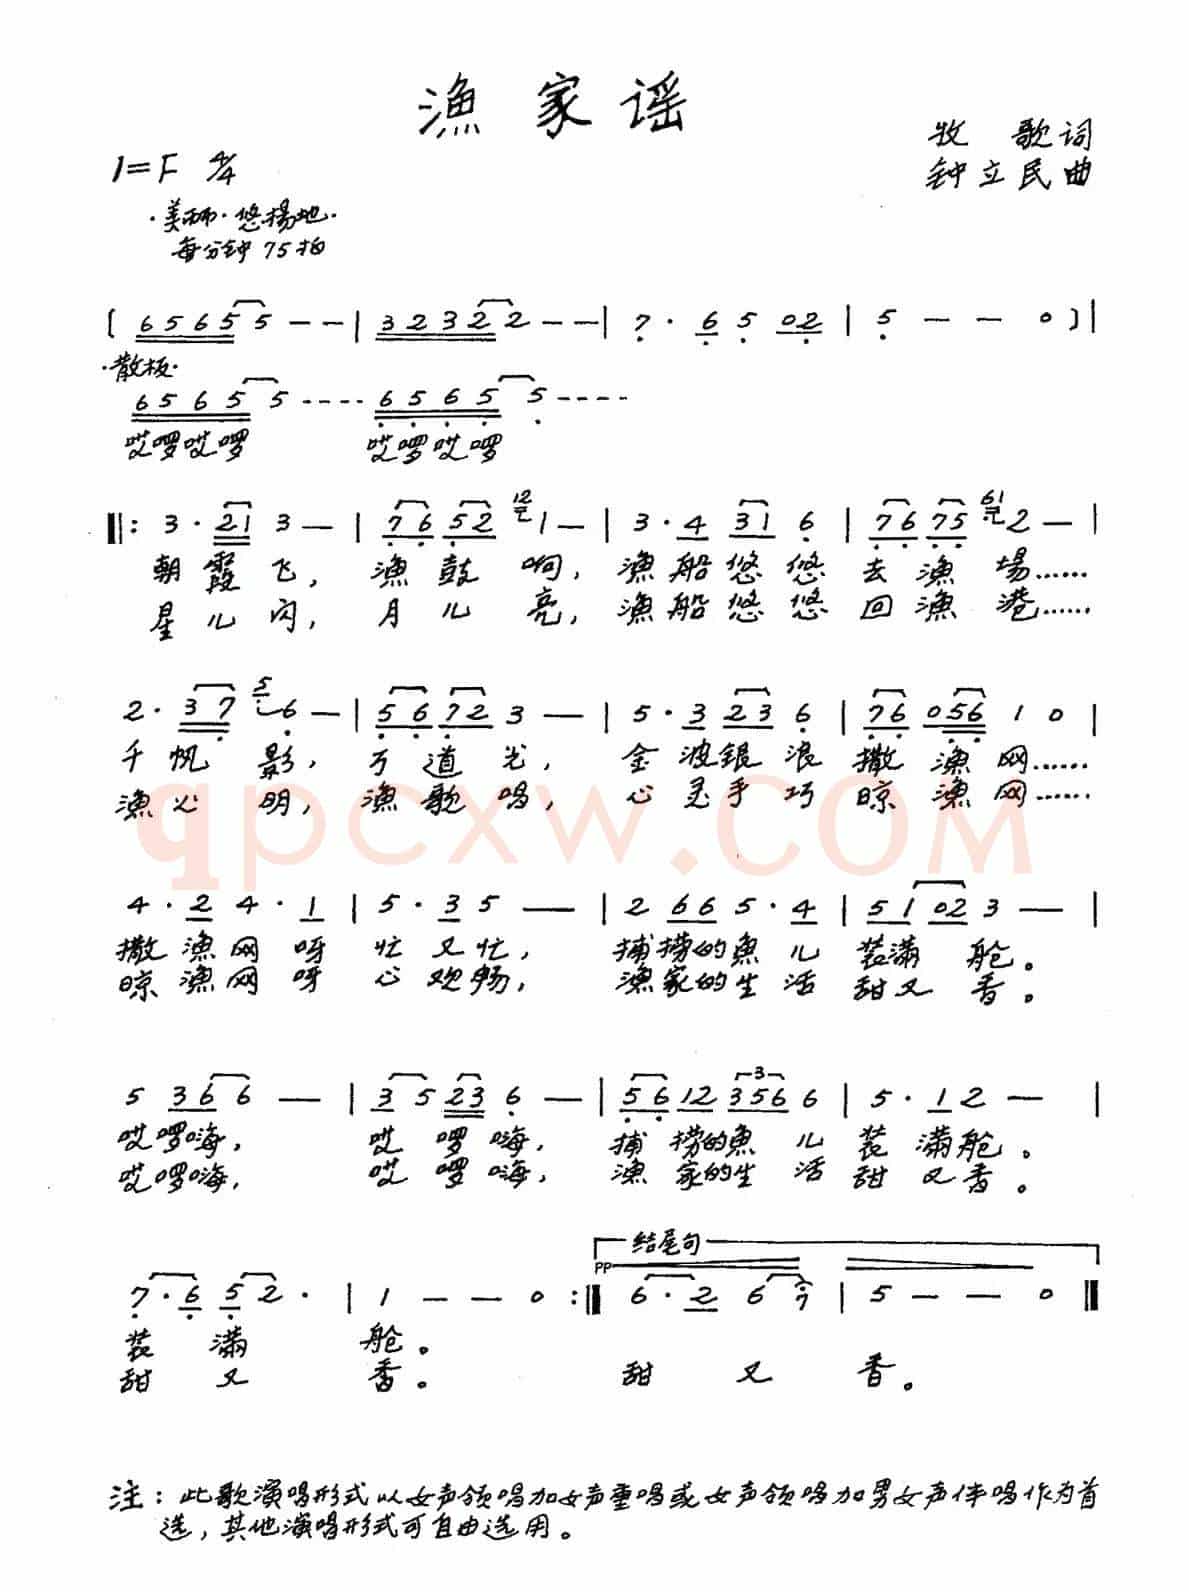 渔家谣
牧 歌词
1=F 4/4
钟立民曲
·美而·悠揚地·
每分钟 75拍
( 6 5 6 5 5 - - | 3 2 3 2 2 - - | 7 · 6 5 02 | 5 - - 0 ) |
·散板·
6 5 6 5 5 ---- 6 5 6 5 5 ----
哎啰哎啰 哎啰哎啰
‖: 3 · 21 3 - | 76 52 12 1 - | 3 · 4 31 6 | 76 75 61 2 - |
朝霞飞, 渔鼓响, 渔船悠悠去渔場……
星儿闪, 月儿亮, 渔船悠悠回渔港……
2 · 37 5 6 - | 56 72 3 - | 5 · 3 23 6 | 76 056 1 0 |
千帆影, 万道光, 金波银浪撒渔网……
渔心明, 渔歌唱, 心灵手巧晾渔网……
qpcxw.com
4 · 2 4 · 1 | 5 · 3 5 - | 2 66 5 · 4 | 51 02 3 - |
撒渔网呀忙又忙, 捕捞的魚儿装满舱。
晾渔网呀心欢畅, 渔家的生活甜又香。
5 36 6 - | 35 23 6 - | 56 12 3 356 6 | 5 · 1 2 - |
哎啰嗨, 哎啰嗨, 捕捞的魚儿装满舱。
哎啰嗨, 哎啰嗨, 渔家的生活甜又香。
结尾句
pp
7 · 6 5 2 · | 1 - - 0 :‖ 6 · 2 6 7 | 5 - - 0 ‖
装满舱。
甜又香。 甜又香。
注: 此歌演唱形式以女声领唱加女声重唱或女声领唱加男女声伴唱作为首
选, 其他演唱形式可自由选用。